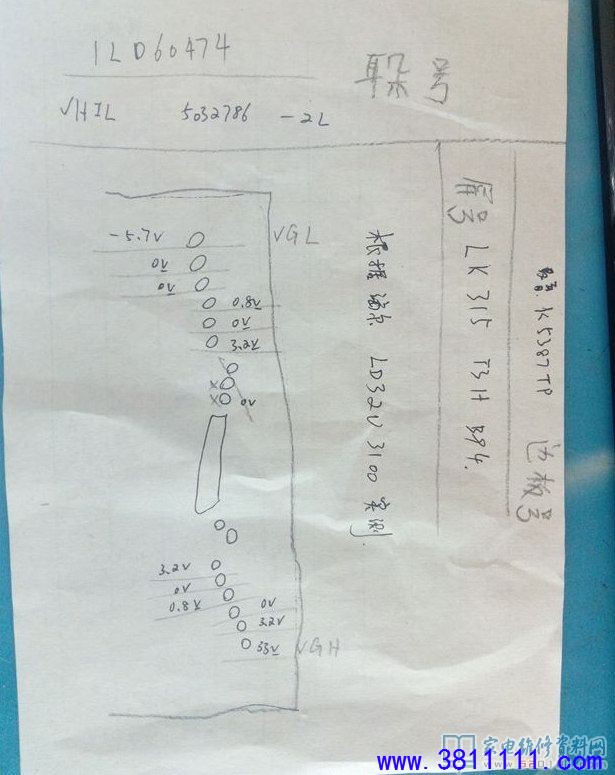 1LD60474
VHIL 5032786 -2L
号
屏号 LK315 T3H B94.
K5387TP
边板号
根据海尔 LD32U3100 实测.
VGL
-5.7V
0V
0V
0.8V
0V
3.2V
0V
3.2V
0V
0.8V
0V
3.2V
33V
VGH
家电维修资料网
www.3811111.com